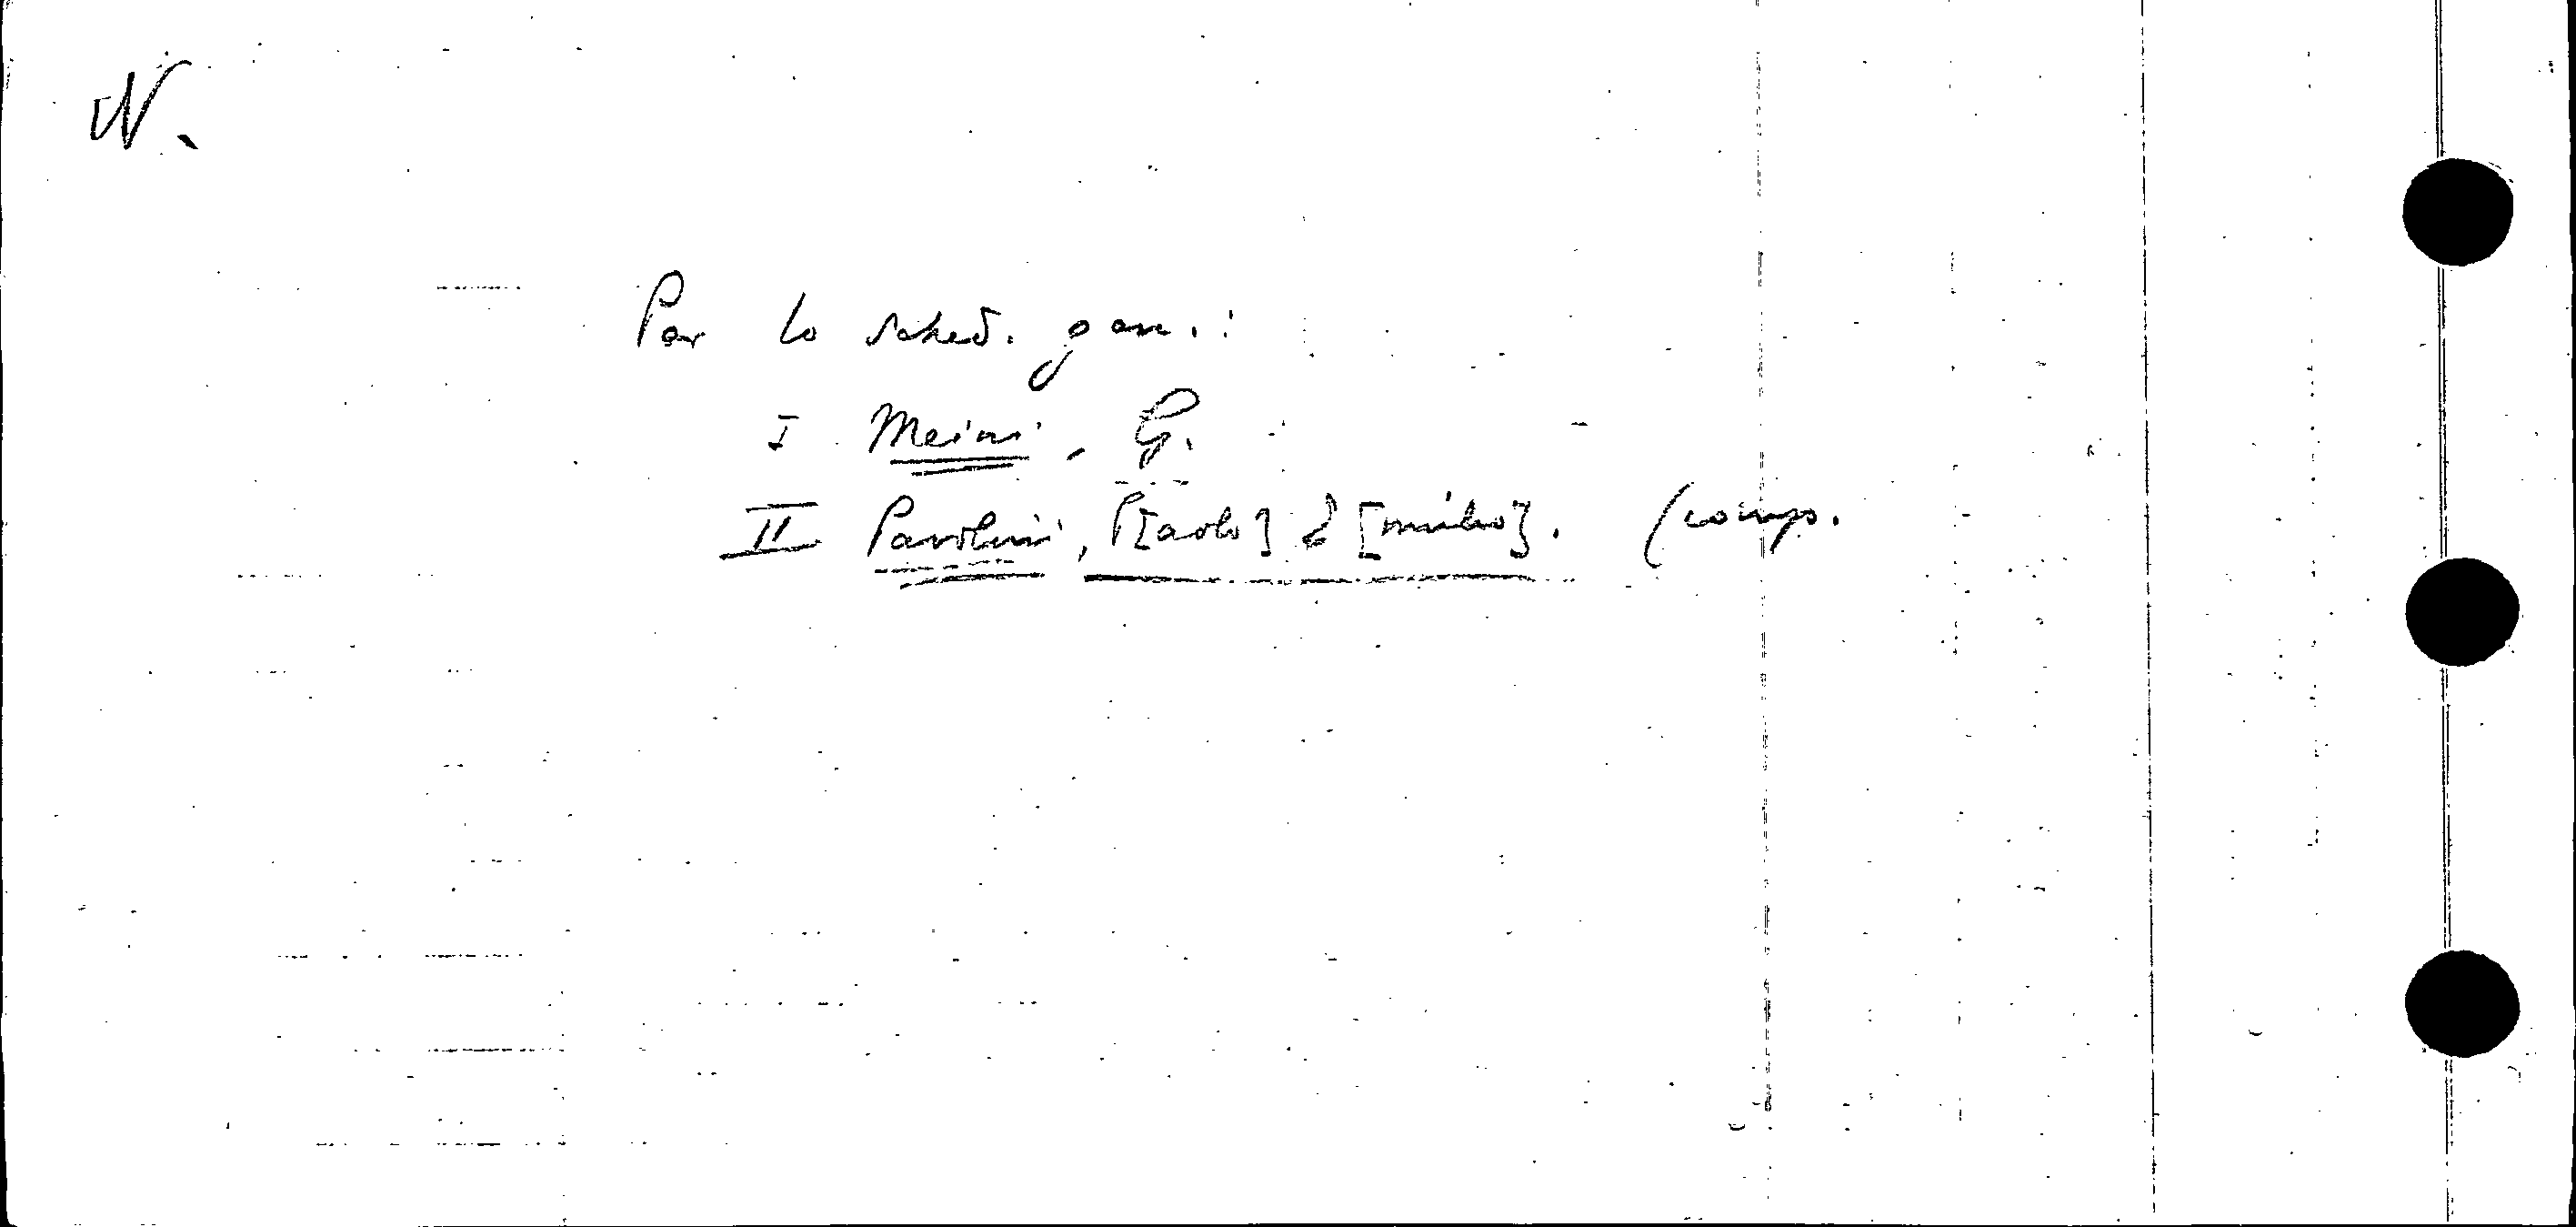 N.
Per lo sched. gen.:
I Meini, G.
II Pavolini, P[aolo] E[milio]. (comp.